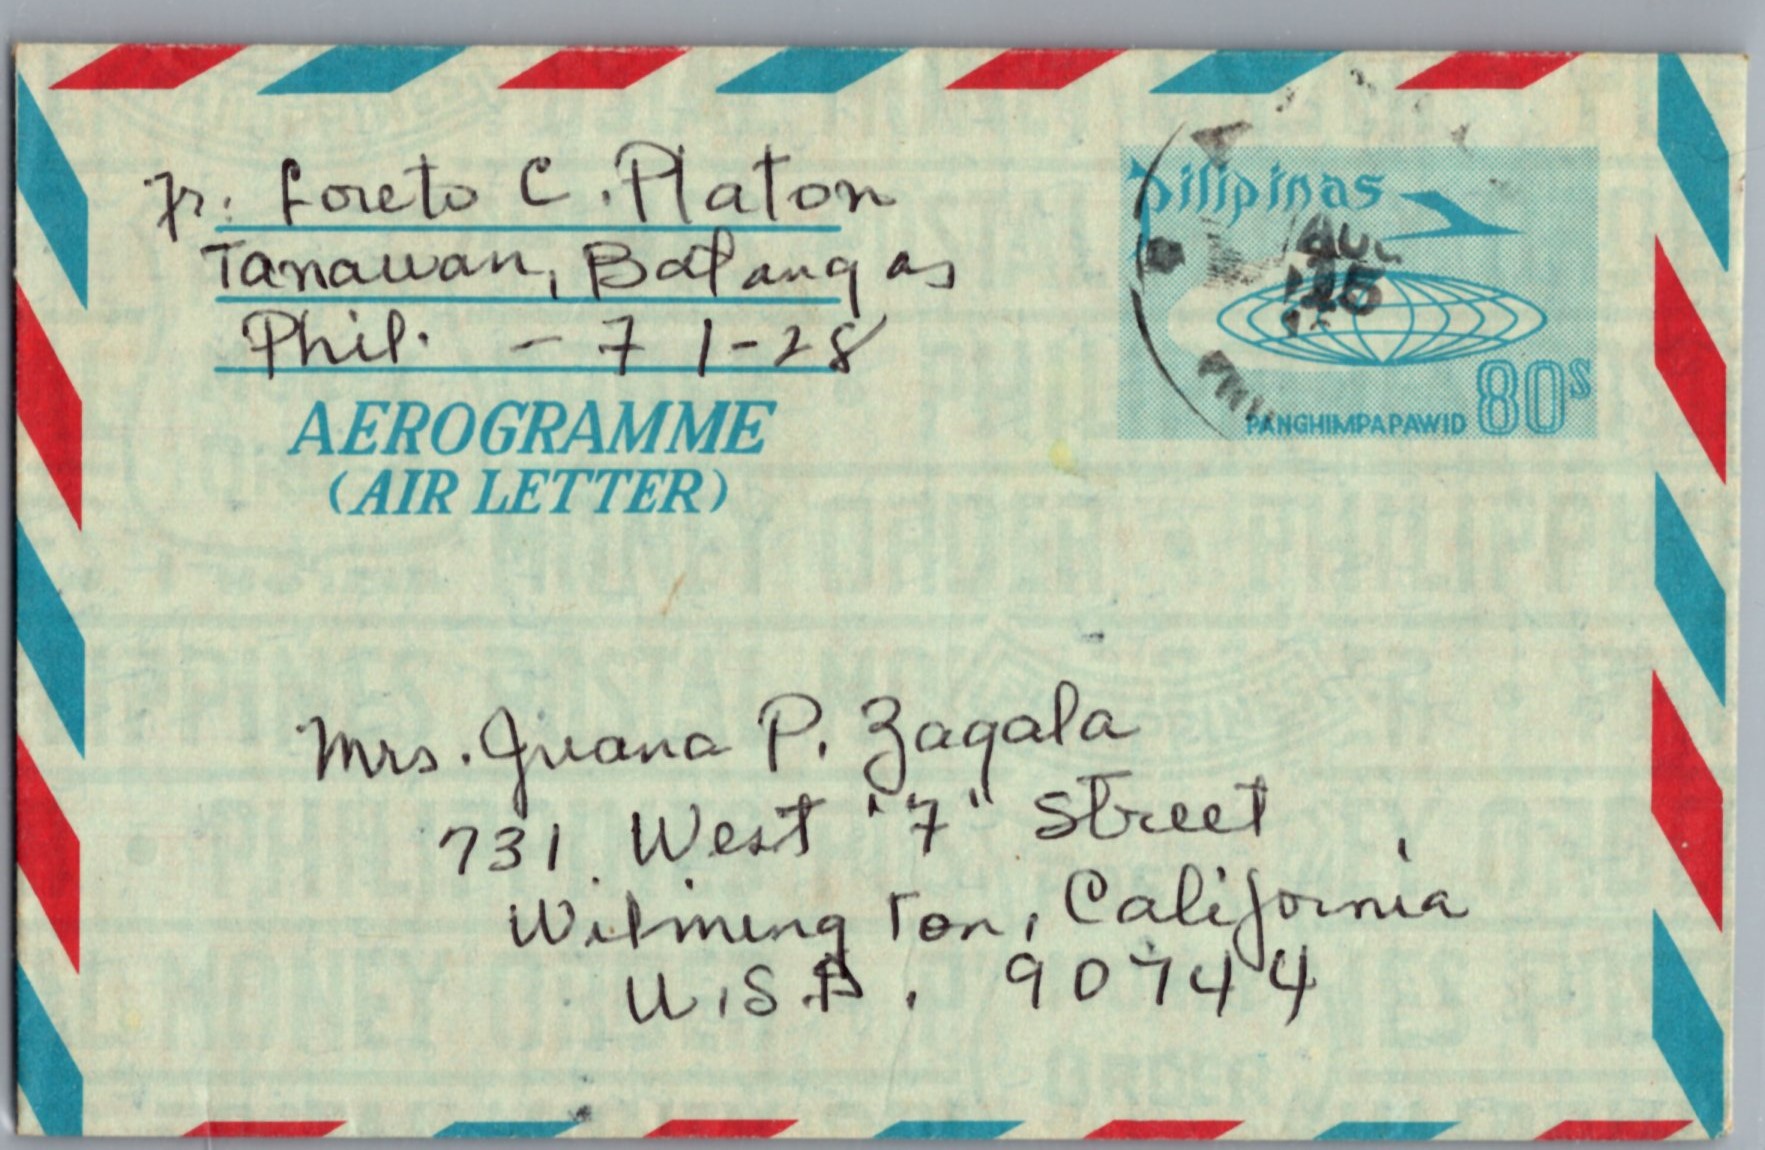 Fr. Loreto C. Platon
Tanawan, Batangas
Phil. - 7 1-28
AEROGRAMME
(AIR LETTER)
pilipinas
AUG
15
PANGHIMPAPAWID 80s
Mrs. Juana P. Zagala
731 West "7" Street,
Wilmington, California
U.S.A. 90744